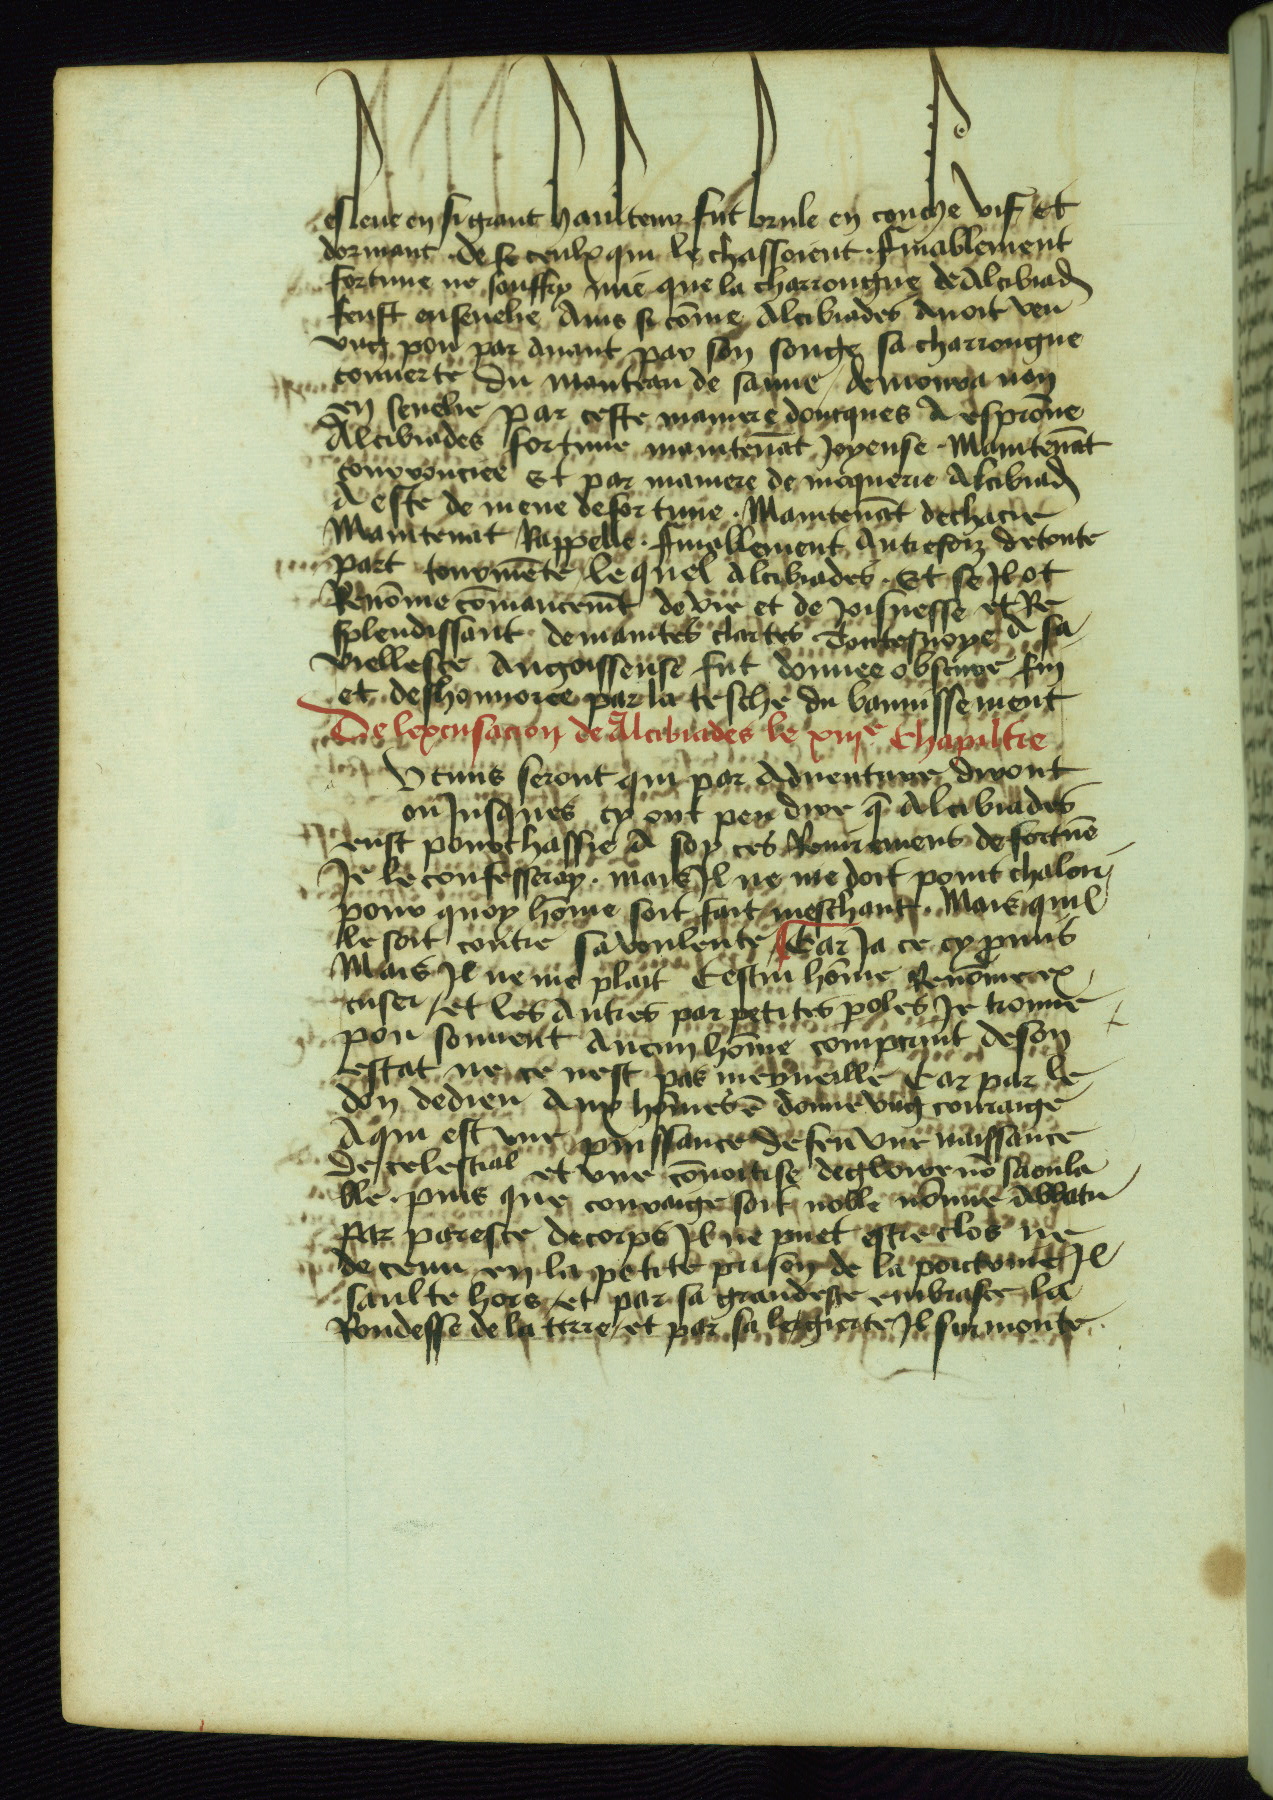 esleue en si grant haulteur fut brule en couche vif et
dormant de ceulx qui le chassoient . finablement
fortune ne souffry mie que la charrongne de Alcibiad
feust enseuelie Ains si cōme Alcibiades auoit veu
vng pou par auant par son songe sa charrongne
couuerte du manteau de samie demoura non
en seuelie par ceste maniere doncques A esprouue
Alcibiades fortune maintenāt Joyeuse . Maintenāt
courrouciee Et par maniere de moquerie Alcibiad
A este de mene de for tune . Maintenāt dechacie
Maintenat Rappelle . finallement Autresfoiz de toute
part tourmēte lequel Alcibiades . Et se Jl ot
Renōme cōmancemēt de vie et de Joisnesse et Re
splendissant de maintes clartes Toutesuoye A sa
viellesce Angoisseuse fut donnee obscure fin
et deshonnoree par la tesche du bannissement
De lexcusacion de Alcibiades le xiiije Chapiltre
Vcuns seront qui par Aduenture diront
ou Jusques cy ont peu dire q̄ Alcibiades
eust pourchassie A soy ces de fortūe
Je le confesseray . mais Jl ne me doit point chaloir
pour quoy hōme soit fait meschant . Mais quil
le soit contre sa voulente / Car Ja ce cy p̄mis
Mais Jl ne me plait Cestui hōme Renōme ex
cuser / et les Autres par petites p̄oles Je trouue
pou souuent Aucun hōme comptant de son
estat ne ce nest pas merueille Car par le
don de dieu Aux hōmes ē donne vng couraige
A qui est vne puissance de feu vne naissance
de celestial et vne cōuoitise de gloire nō saoula
ble . puis que couraige soit noble nōmie Abbatu
par paresce de corps Jl ne puet estre clos ne
de tenu en la petite prison de la poictrine Jl
saulte hors / et par sa grandesce embrasce la
Rondesse de la terre / et par sa legierte Jl surmonte .